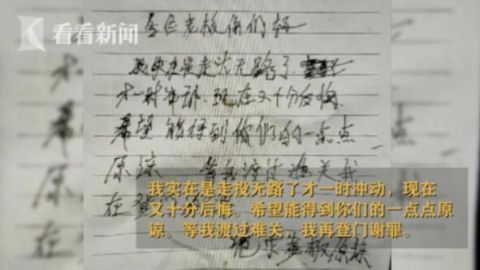 看看新闻
各位老板你们好
我实在是走投无路了
才一时冲动 现在又十分后悔
希望能得到你们的一点点
原谅 等我渡过难关我
在登
原谅
我实在是走投无路了才一时冲动，现在
又十分后悔。希望能得到你们的一点点原
谅。等我渡过难关，我再登门谢罪。